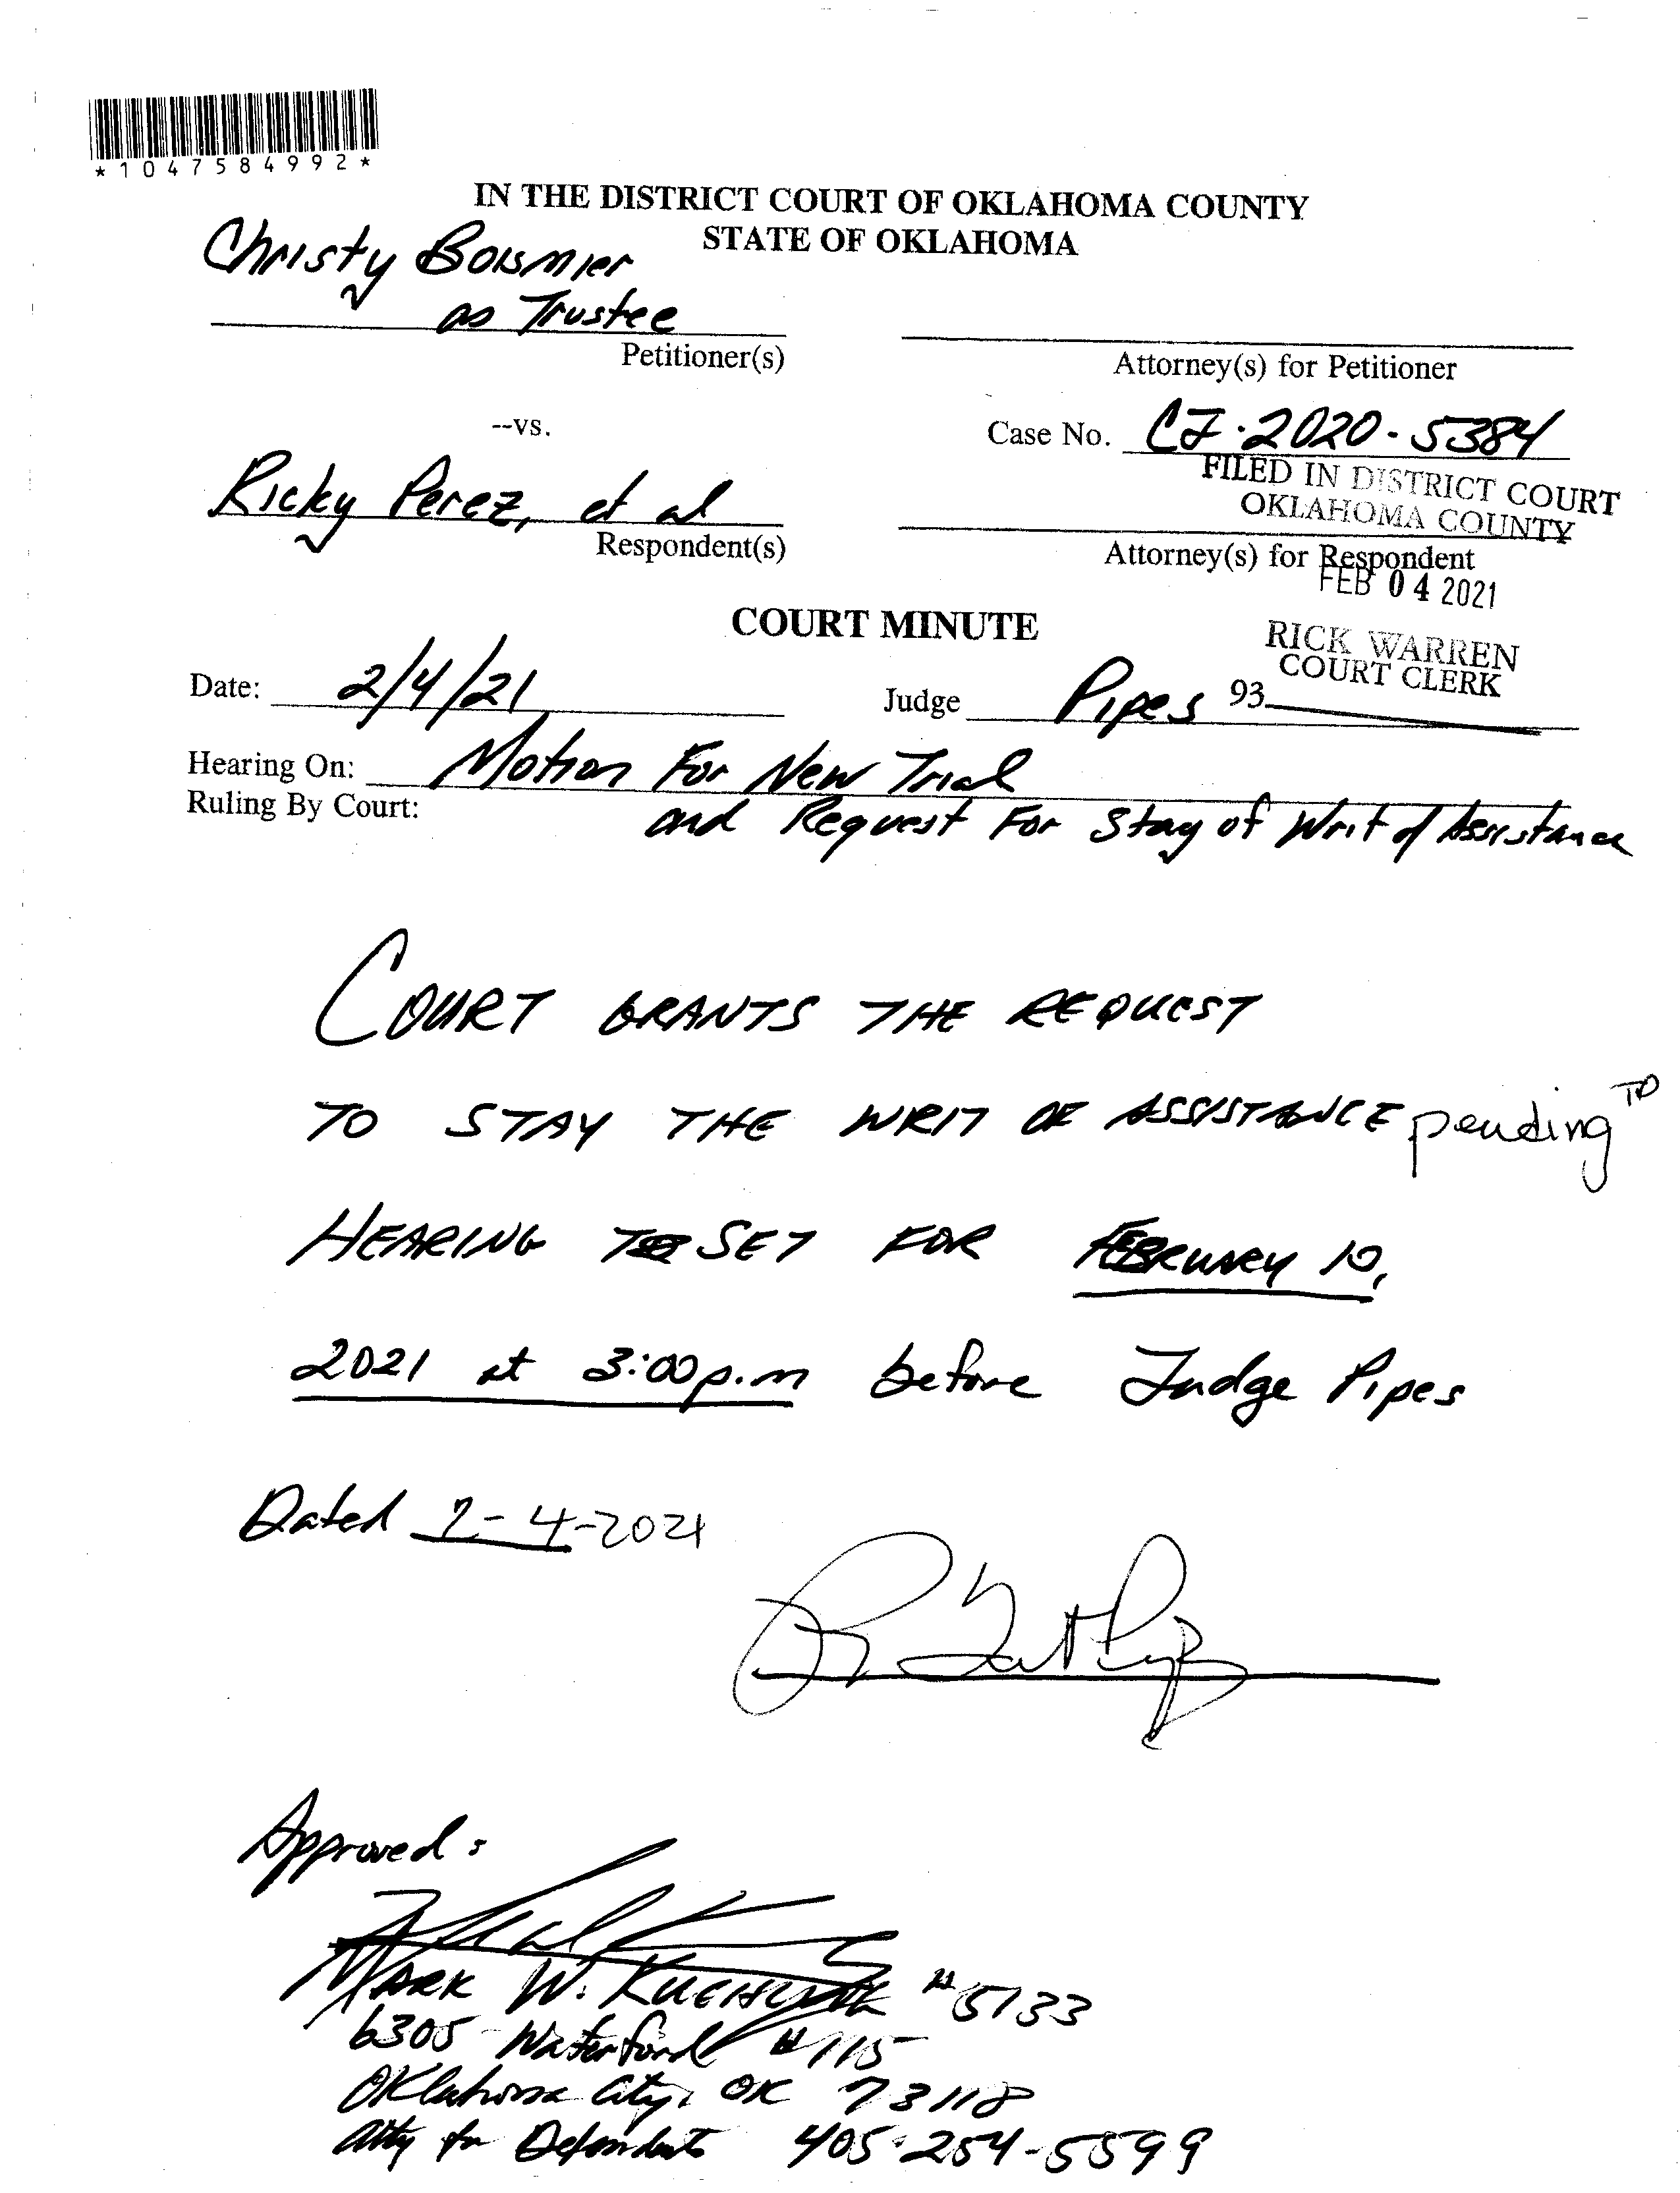 *1047584992*
IN THE DISTRICT COURT OF OKLAHOMA COUNTY
STATE OF OKLAHOMA
Christy
as Trustee
Petitioner(s)
Attorney(s) for Petitioner
--vs.
Case No. CJ-2020-5384
FILED IN DISTRICT COURT
OKLAHOMA COUNTY
Ricky Perez, et al
Respondent(s)
Attorney(s) for Respondent
FEB 04 2021
COURT MINUTE
RICK WARREN
COURT CLERK
Date: 2/4/21
Judge Pipes 93
Hearing On: Motion For New Trial
Ruling By Court: and Request For Stay of Writ of Assistance
COURT GRANTS THE REQUEST
TO STAY THE WRIT OF ASSISTANCE pending TP
HEARING SET FOR FEBRUARY 10,
2021 at 3:00 p.m before Judge Pipes
Dated 2-4-2021
Approved:
MARK W. #5133
6305 Waterford #115
Oklahoma City, OK 73118
Atty for Defendants 405-254-5599